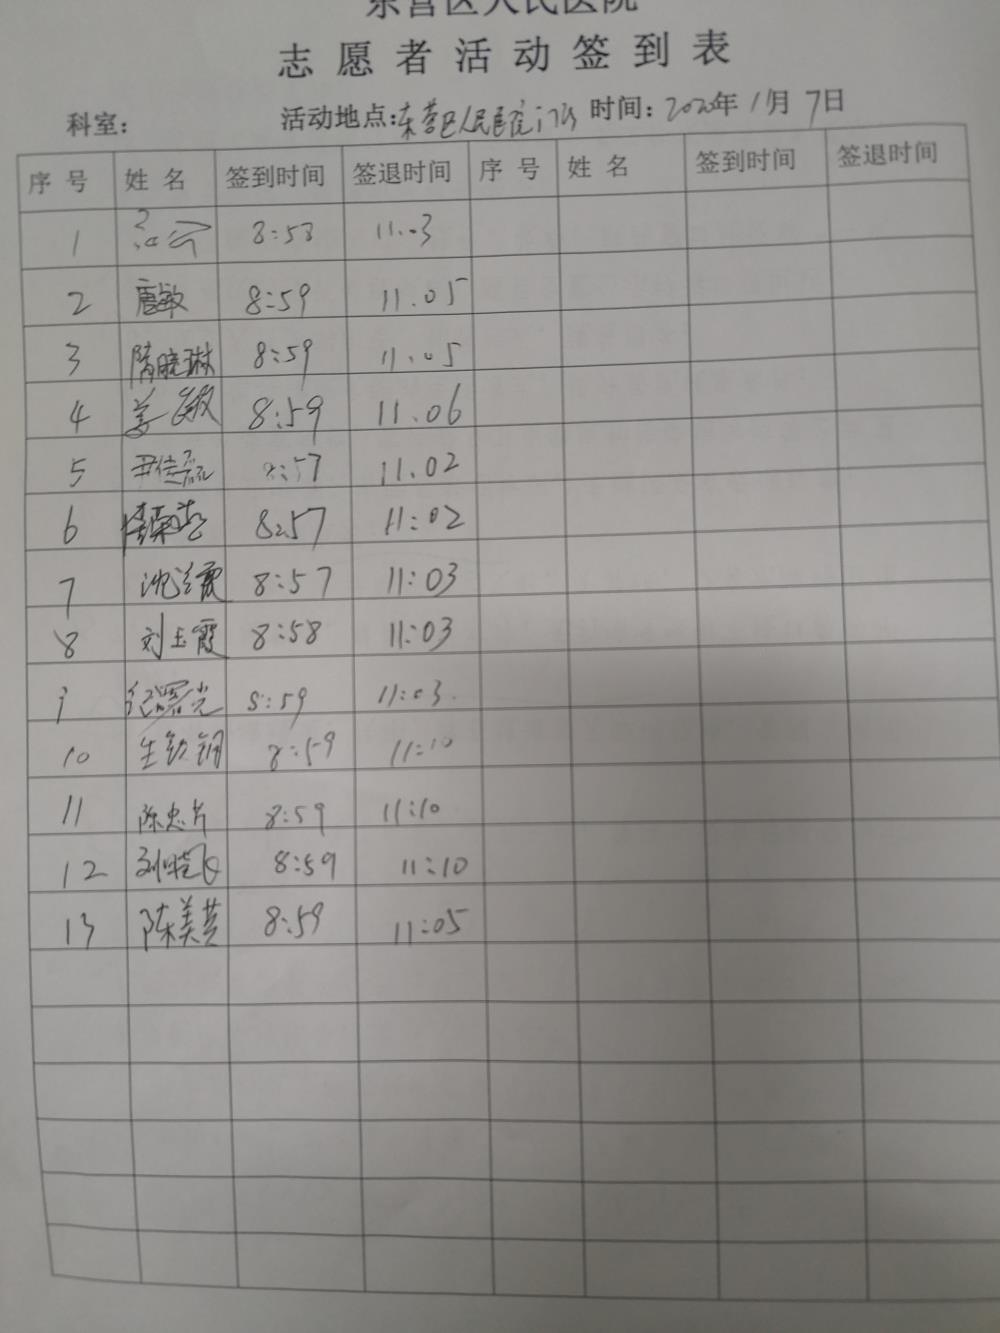 东营区人民医院
志愿者活动签到表
科室： 活动地点：东营区人民医院门诊 时间：2020年1月7日
序号 姓名 签到时间 签退时间 序号 姓名 签到时间 签退时间
1 8:58 11.03
2 唐敏 8:59 11.05
3 隋晓琳 8:59 11.05
4 姜敏 8:59 11.06
5 8:57 11.02
6 8:57 11:02
7 沈兰霞 8:57 11:03
8 刘玉霞 8:58 11:03
9 纪曙光 8:59 11:03.
10 8:59 11:10
11 陈忠片 8:59 11:10
12 刘晓飞 8:59 11:10
13 陈美英 8:59 11:05